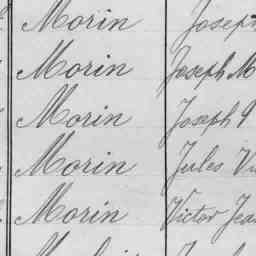 Morin Joseph
Morin Joseph M
Morin Joseph
Morin Jules
Morin Victor Jean